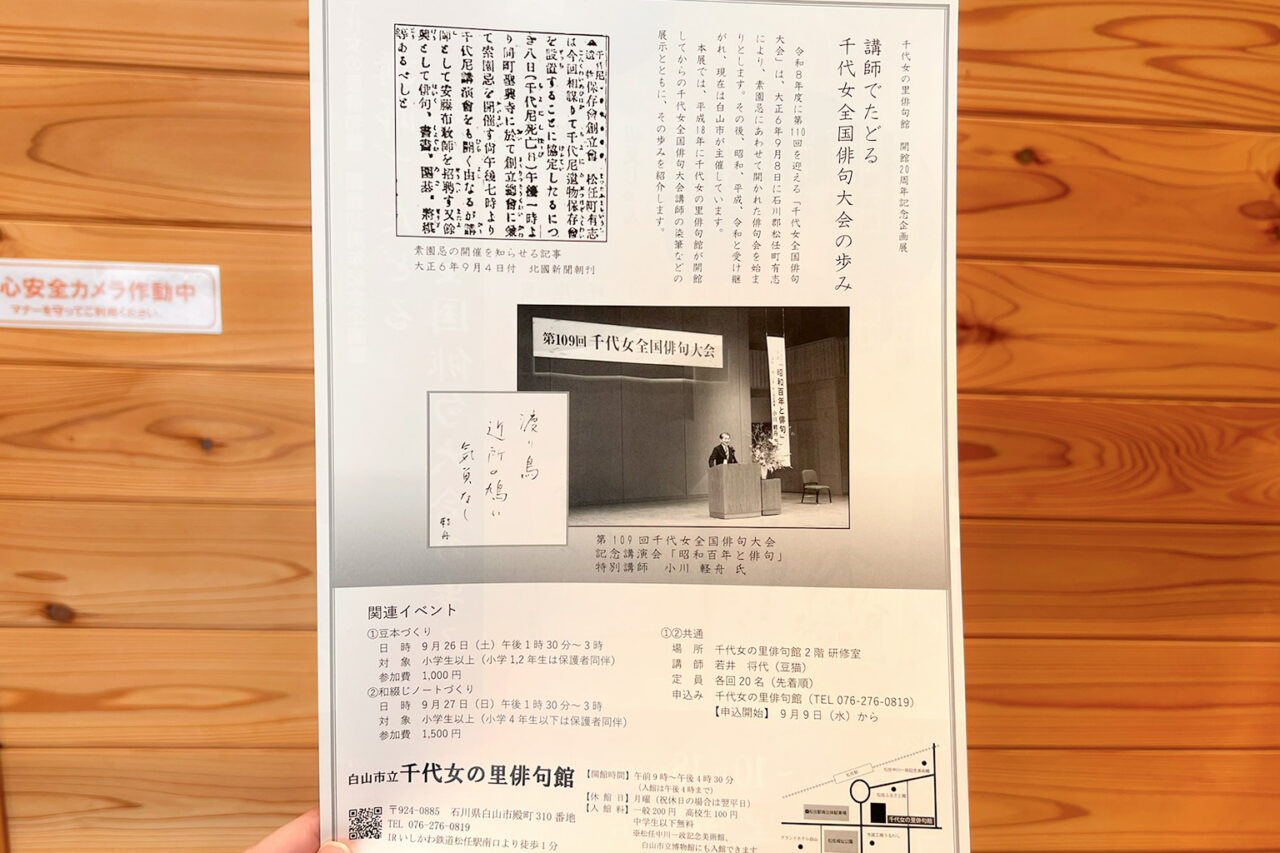 千代女の里俳句館 開館20周年記念企画展
講師でたどる
千代女全国俳句大会の歩み
令和8年度に第110回を迎える「千代女全国俳句
大会」は、大正6年9月8日に石川郡松任町有志
により、素園忌にあわせて開かれた俳句会を始ま
りとします。その後、昭和、平成、令和と受け継
がれ、現在は白山市が主催しています。
本展では、平成18年に千代女の里俳句館が開館
してからの千代女全国俳句大会講師の染筆などの
展示とともに、その歩みを紹介します。
保存會創立會 松任町有志
は今回相謀りて千代尼遺物保存會
を設置することに協定したるにつ
き八日(千代尼死亡日)午後一時よ
り同町聖興寺に於て創立總會に兼
て素園忌を開催す尚午後七時より
千代尼講演會をも開く由なるが講
師として安藤布秋師を招聘す又餘
興として俳句、書畫、圍碁、將棋
等あるべしと
素園忌の開催を知らせる記事
大正6年9月4日付 北國新聞朝刊
心安全カメラ作動中
マナーを守ってご利用ください。
第109回 千代女全国俳句大会
「昭和百年と俳句」
小川 軽舟
渡り鳥
近所の鳩に
気負なし
軽舟
第109回千代女全国俳句大会
記念講演会「昭和百年と俳句」
特別講師 小川 軽舟 氏
関連イベント
①豆本づくり
日 時 9月26日(土)午後1時30分~3時
対 象 小学生以上(小学1,2年生は保護者同伴)
参加費 1,000円
②和綴じノートづくり
日 時 9月27日(日)午後1時30分~3時
対 象 小学生以上(小学4年生以下は保護者同伴)
参加費 1,500円
①②共通
場 所 千代女の里俳句館2階 研修室
講 師 若井 将代(豆猫)
定 員 各回20名(先着順)
申込み 千代女の里俳句館(TEL 076-276-0819)
【申込開始】 9月9日(水)から
白山市立千代女の里俳句館
〒924-0885 石川県白山市殿町310番地
TEL 076-276-0819
IRいしかわ鉄道松任駅南口より徒歩1分
【開館時間】午前9時~午後4時30分
(入館は午後4時まで)
【休 館 日】月曜(祝休日の場合は翌平日)
【入 館 料】一般200円 高校生100円
中学生以下無料
※松任中川一政記念美術館、
白山市立博物館にも入館できます
松任駅
松任中川一政記念美術館
松任ふるさと館
千代女の里俳句館
グランドホテル白山